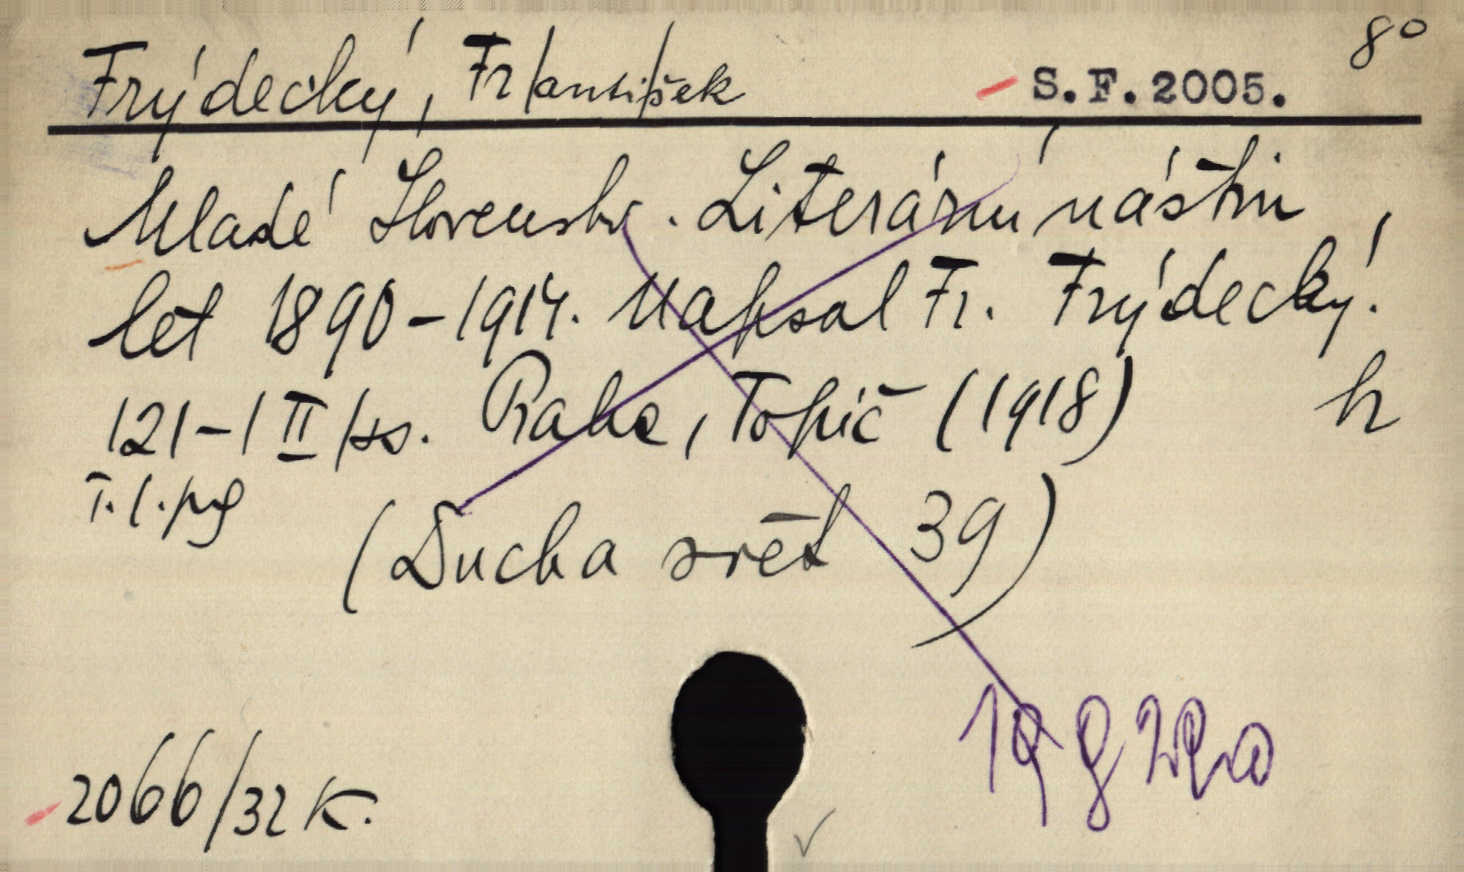 8°
Frýdecký, Fr/antišek S. F. 2005.
Mladé Slovensko. Literární nástin
let 1890-1914. Napsal Fr. Frýdecký.
121-/II/ss. Praha, Topič (1918) h
(Ducha svět 39)
2066/32 K.